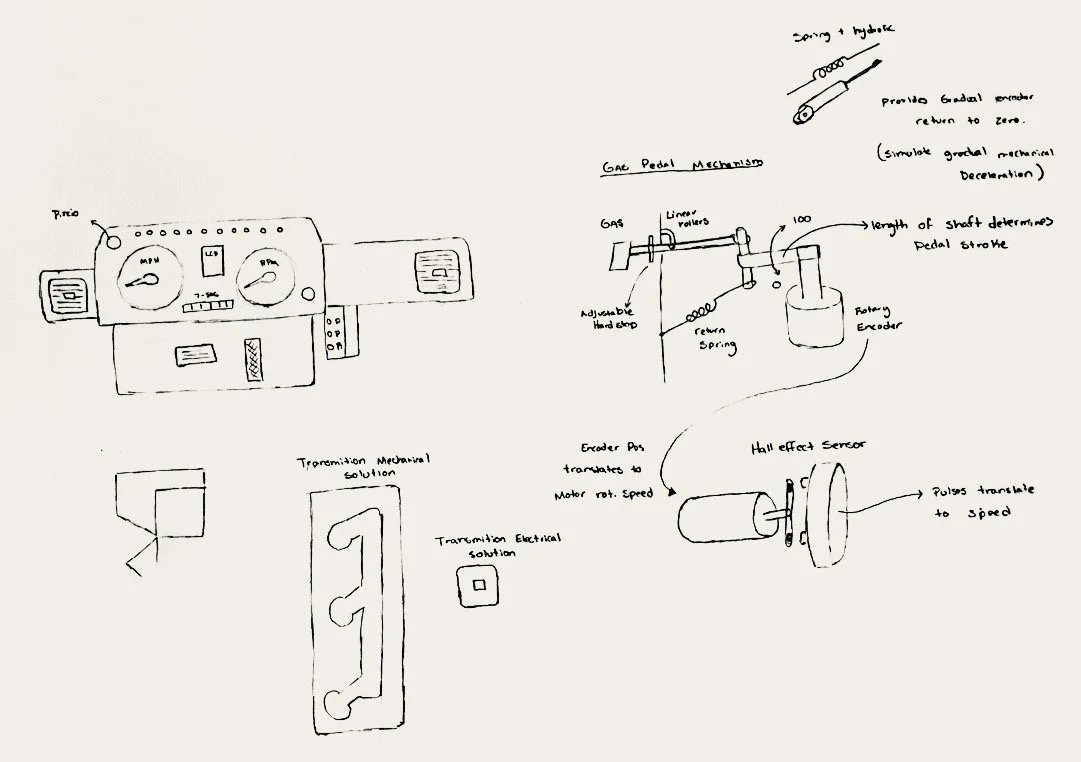 Spring + hydrolic
Provides Gradual encoder
return to zero.
(Simulate gradual mechanical
Deceleration)
GAS Pedal Mechanism
GAS
Linear
rollers
100
length of shaft determines
Pedal stroke
Adjustable
Hard stop
return
Spring
0
Rotary
Encoder
MPH
LCD
RPM
7-SEG
Encoder Pos
translates to
Motor rot. speed
Hall effect Sensor
Pulses translate
to speed
Transmition Mechanical
solution
Transmition Electrical
solution